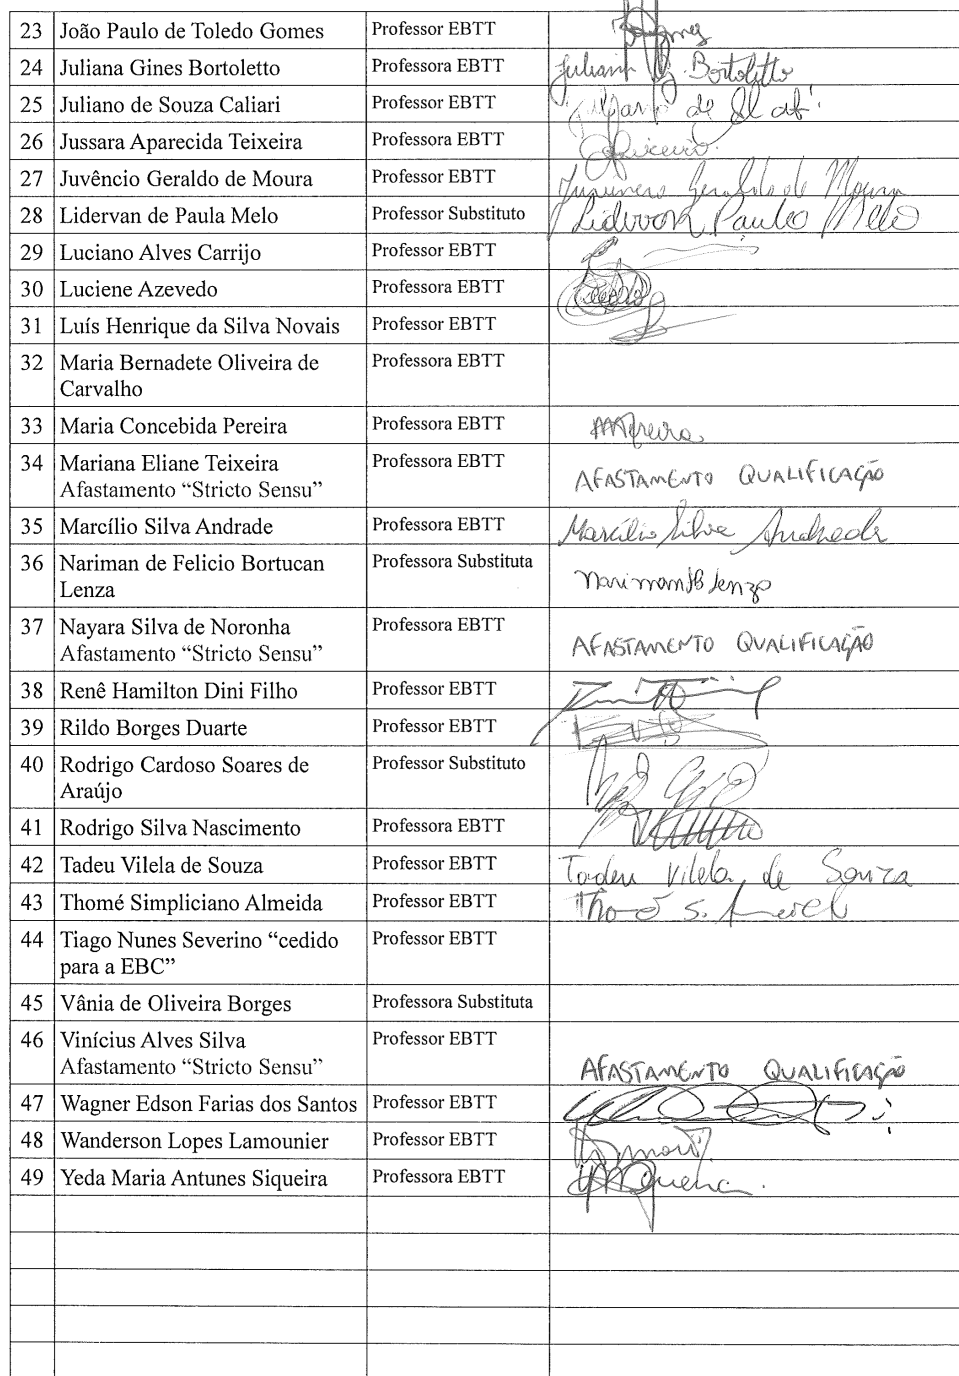 23 João Paulo de Toledo Gomes Professor EBTT
24 Juliana Gines Bortoletto Professora EBTT Juliana G. Bortoletto
25 Juliano de Souza Caliari Professora EBTT Juliano de
26 Jussara Aparecida Teixeira Professora EBTT
27 Juvêncio Geraldo de Moura Professora EBTT Juvêncio Geraldo de Moura
28 Lidervan de Paula Melo Professor Substituto Lidervan Paula Melo
29 Luciano Alves Carrijo Professor EBTT
30 Luciene Azevedo Professor EBTT
31 Luís Henrique da Silva Novais Professor EBTT
32 Maria Bernadete Oliveira de Professora EBTT
Carvalho
33 Maria Concebida Pereira Professora EBTT
34 Mariana Eliane Teixeira Professora EBTT
Afastamento “Stricto Sensu” AFASTAMENTO QUALIFICAÇÃO
35 Marcílio Silva Andrade Professor EBTT Marcílio Silva Andrade
36 Nariman de Felicio Bortucan Professora Substituta
Lenza Nariman FB Lenza
37 Nayara Silva de Noronha Professora EBTT
Afastamento “Stricto Sensu” AFASTAMENTO QUALIFICAÇÃO
38 Renê Hamilton Dini Filho Professor EBTT
39 Rildo Borges Duarte Professor EBTT
40 Rodrigo Cardoso Soares de Professor Substituto
Araújo
41 Rodrigo Silva Nascimento Professora EBTT
42 Tadeu Vilela de Souza Professor EBTT Tadeu Vilela de Souza
43 Thomé Simpliciano Almeida Professor EBTT Thomé S. Almeida
44 Tiago Nunes Severino “cedido Professor EBTT
para a EBC”
45 Vânia de Oliveira Borges Professora Substituta
46 Vinícius Alves Silva Professor EBTT
Afastamento “Stricto Sensu” AFASTAMENTO QUALIFICAÇÃO
47 Wagner Edson Farias dos Santos Professor EBTT
48 Wanderson Lopes Lamounier Professor EBTT
49 Yeda Maria Antunes Siqueira Professora EBTT